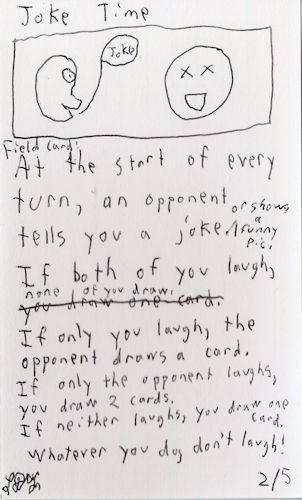 Joke Time
Joke
Field card:
At the start of every
turn, an opponent or shows
tells you a joke./a funny pic!
If both of you laugh,
none of you draw.
you draw one card.
If only you laugh, the
opponent draws a card.
If only the opponent laughs,
you draw 2 cards.
If neither laughs, you draw one
card.
Whatever you do, don't laugh!
2/5